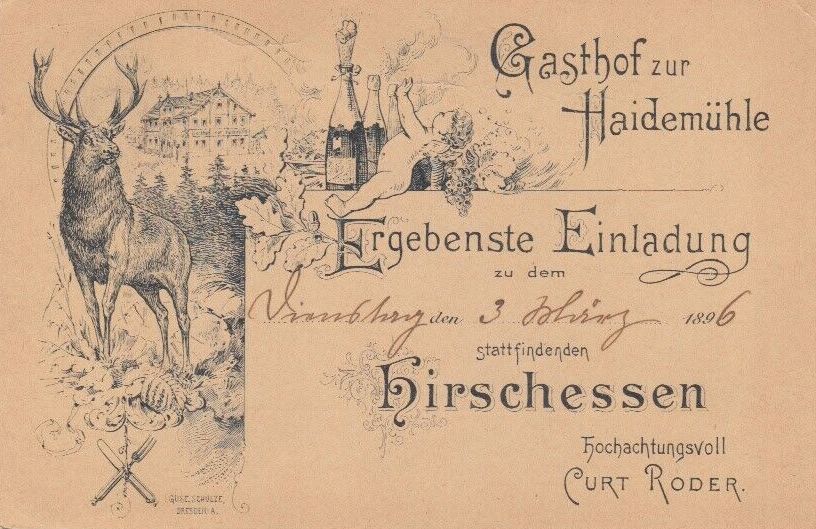 Gasthof zur
Haidemühle
Ergebenste Einladung
zu dem
Dienstag den 3 März 1896
stattfindenden
Hirschessen
Hochachtungsvoll
CURT RODER.
SCHULZE,
DRESDEN A.